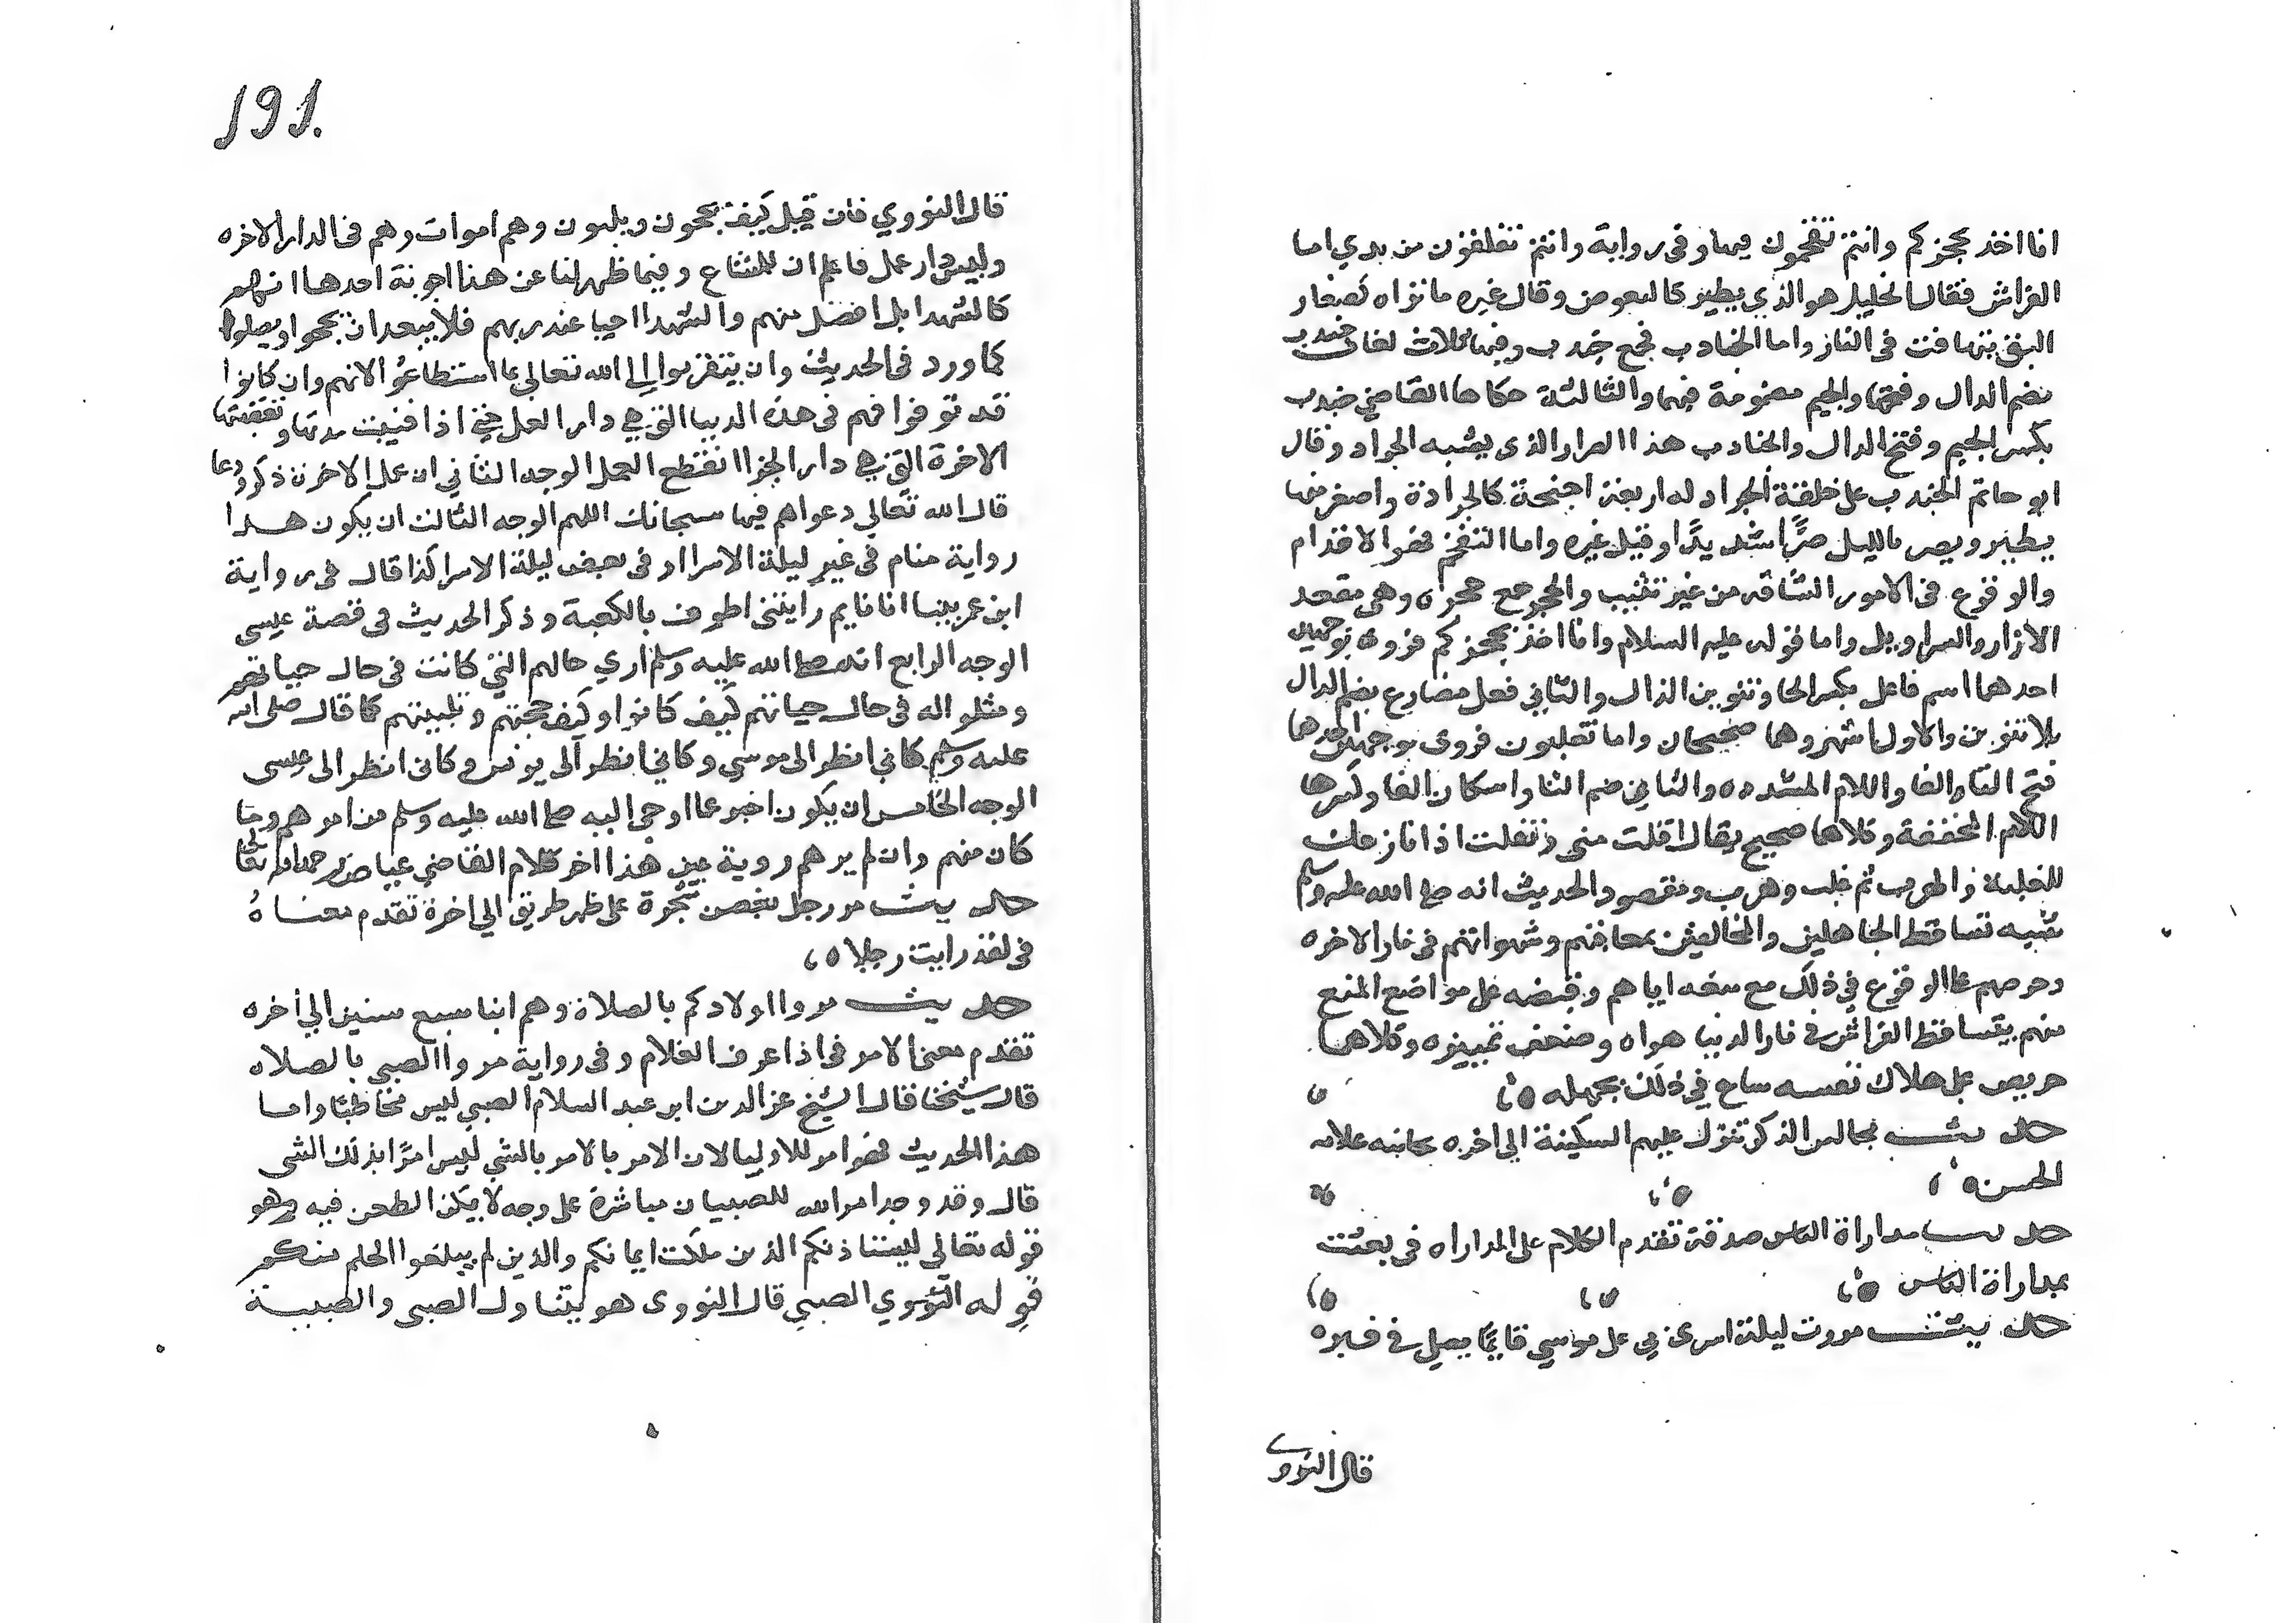 انا اخذ بحجزكم وانتم تقحمون فيها وفي رواية وانتم تفلتون من يدي اما
الفراش فقال الخليل هو الذي يطير كالبعوض وقال غيره ما نراه كصغار
البق يتهافت في النار واما الجنادب فجمع جندب وفيها ثلاث لغات جندب
بضم الدال وفتحها والجيم مضمومة فيهما والثالثة حكاها القاضي جندب
بكسر الجيم وفتح الدال والجنادب هذا الصرار الذي يشبه الجراد وقال
ابو حاتم الجندب على خلقة الجراد له اربعة اجنحة كالجرادة واصغر منها
يطير ويصر بالليل صرًا شديدًا وقيل غيره واما التقحم فهو الاقدام
والوقوع في الامور الشاقه من غير تثبيت والحجز جمع حجزه وهي معقد
الازار والسراويل واما قوله عليه السلام وانا اخذ بحجزكم فروي بوجهين
احدهما اسم فاعل بكسر الخا وتنوين الذال والثاني فعل مضارع بضم الذال
بلا تنوين والاول اشهر وهما صحيحان واما تفلتون فروي بوجهين احدهما
فتح التا والفا واللام المشدده والثاني ضم التا واسكان الفا وكسرها
اللام المخففة وكلاهما صحيح يقال افلت مني وتفلت اذا نازعك
للغلبة والهرب ثم غلب وهرب ومقصود الحديث انه صلى الله عليه وسلم
شبه تساقط الجاهلين والمخالفين بمعاصيهم وشهواتهم في نار الاخره
وحرصهم على الوقوع في ذلك مع منعه اياهم وقبضه على مواضع المنع
منهم بتساقط الفراش في نار الدنيا هواه وضعف تمييزه وكلاهما
حريص على هلاك نفسه ساع في ذلك بجهله
حديث مجالس الذكر تنزل عليهم السكينة الى اخره بجانبه علامه
الحسن
حديث مداراة الناس صدقة تقدم الكلام على المداراه في بعثت
بمداراة الناس
حديث مررت ليلة اسري بي على موسي قايمًا يصلي في قبره
قال النووي
191
قال النووي فان قيل كيف يحجون ويلبون وهم اموات وهم في الدار الاخره
وليس دار عمل فاعلم ان للمشايخ وفيما ظهر لنا عن هذا اجوبة احدها انهم
كالشهدا بل افضل منهم والشهدا احيا عند ربهم فلا يبعد ان يحجوا ويصلوا
كما ورد في الحديث وان يتقربوا الى الله تعالى بما استطاعوا لانهم وان كانوا
قد توفوا فهم في هذه الدنيا التي هي دار العمل حتى اذا فنيت مدتها وتعقبتها
الاخرة التي هي دار الجزا انقطع العمل الوجه الثاني ان عمل الاخرة ذكر ودعا
قال الله تعالي دعواهم فيها سبحانك اللهم الوجه الثالث ان يكون هذا
رواية منام في غير ليلة الاسرا او في بعض ليلة الاسرا كذا قال في رواية
ابن عمر بينا انا نايم رايتني اطوف بالكعبة وذكر الحديث في قصة عيسى
الوجه الرابع انه صلى الله عليه وسلم اري حالهم التي كانت في حال حياتهم
ومثلوا له في حال حياتهم كيف كانوا وكيف حجتهم وتلبيتهم كما قال صلى الله
عليه وسلم كاني انظر الى موسي وكاني انظر الى يونس وكاني انظر الى عيسى
الوجه الخامس ان يكون اخبر عما اوحي اليه صلى الله عليه وسلم من امرهم وما
كان منهم وان لم يرهم روية عين هذا اخر كلام القاضي عياض رحمه الله تعالى
حديث مر رجل بغصن شجرة على ظهر طريق الي اخرة تقدم معناهُ
في لقد رايت رجلا
حديث مروا اولادكم بالصلاة وهم ابنا سبع سنين الي أخره
تقدم معنى الامر في اذا عرف الغلام وفي رواية مروا الصبي بالصلاه
قال شيخنا قال الشيخ عز الدين ابن عبد السلام الصبي ليس مخاطبًا واما
هذا الحديث فهو امر للاوليا لان الامر بالامر بالشي ليس امرًا بذلك الشي
قال وقد وجد امر الله للصبيان مباشرة على وجه لا يمكن الطعن فيه وهو
قوله تعالي ليستاذنكم الذين ملكت ايمانكم والذين لم يبلغوا الحلم منكم
قوله النووي الصبي قال النووي هو يتناول الصبي والصبية